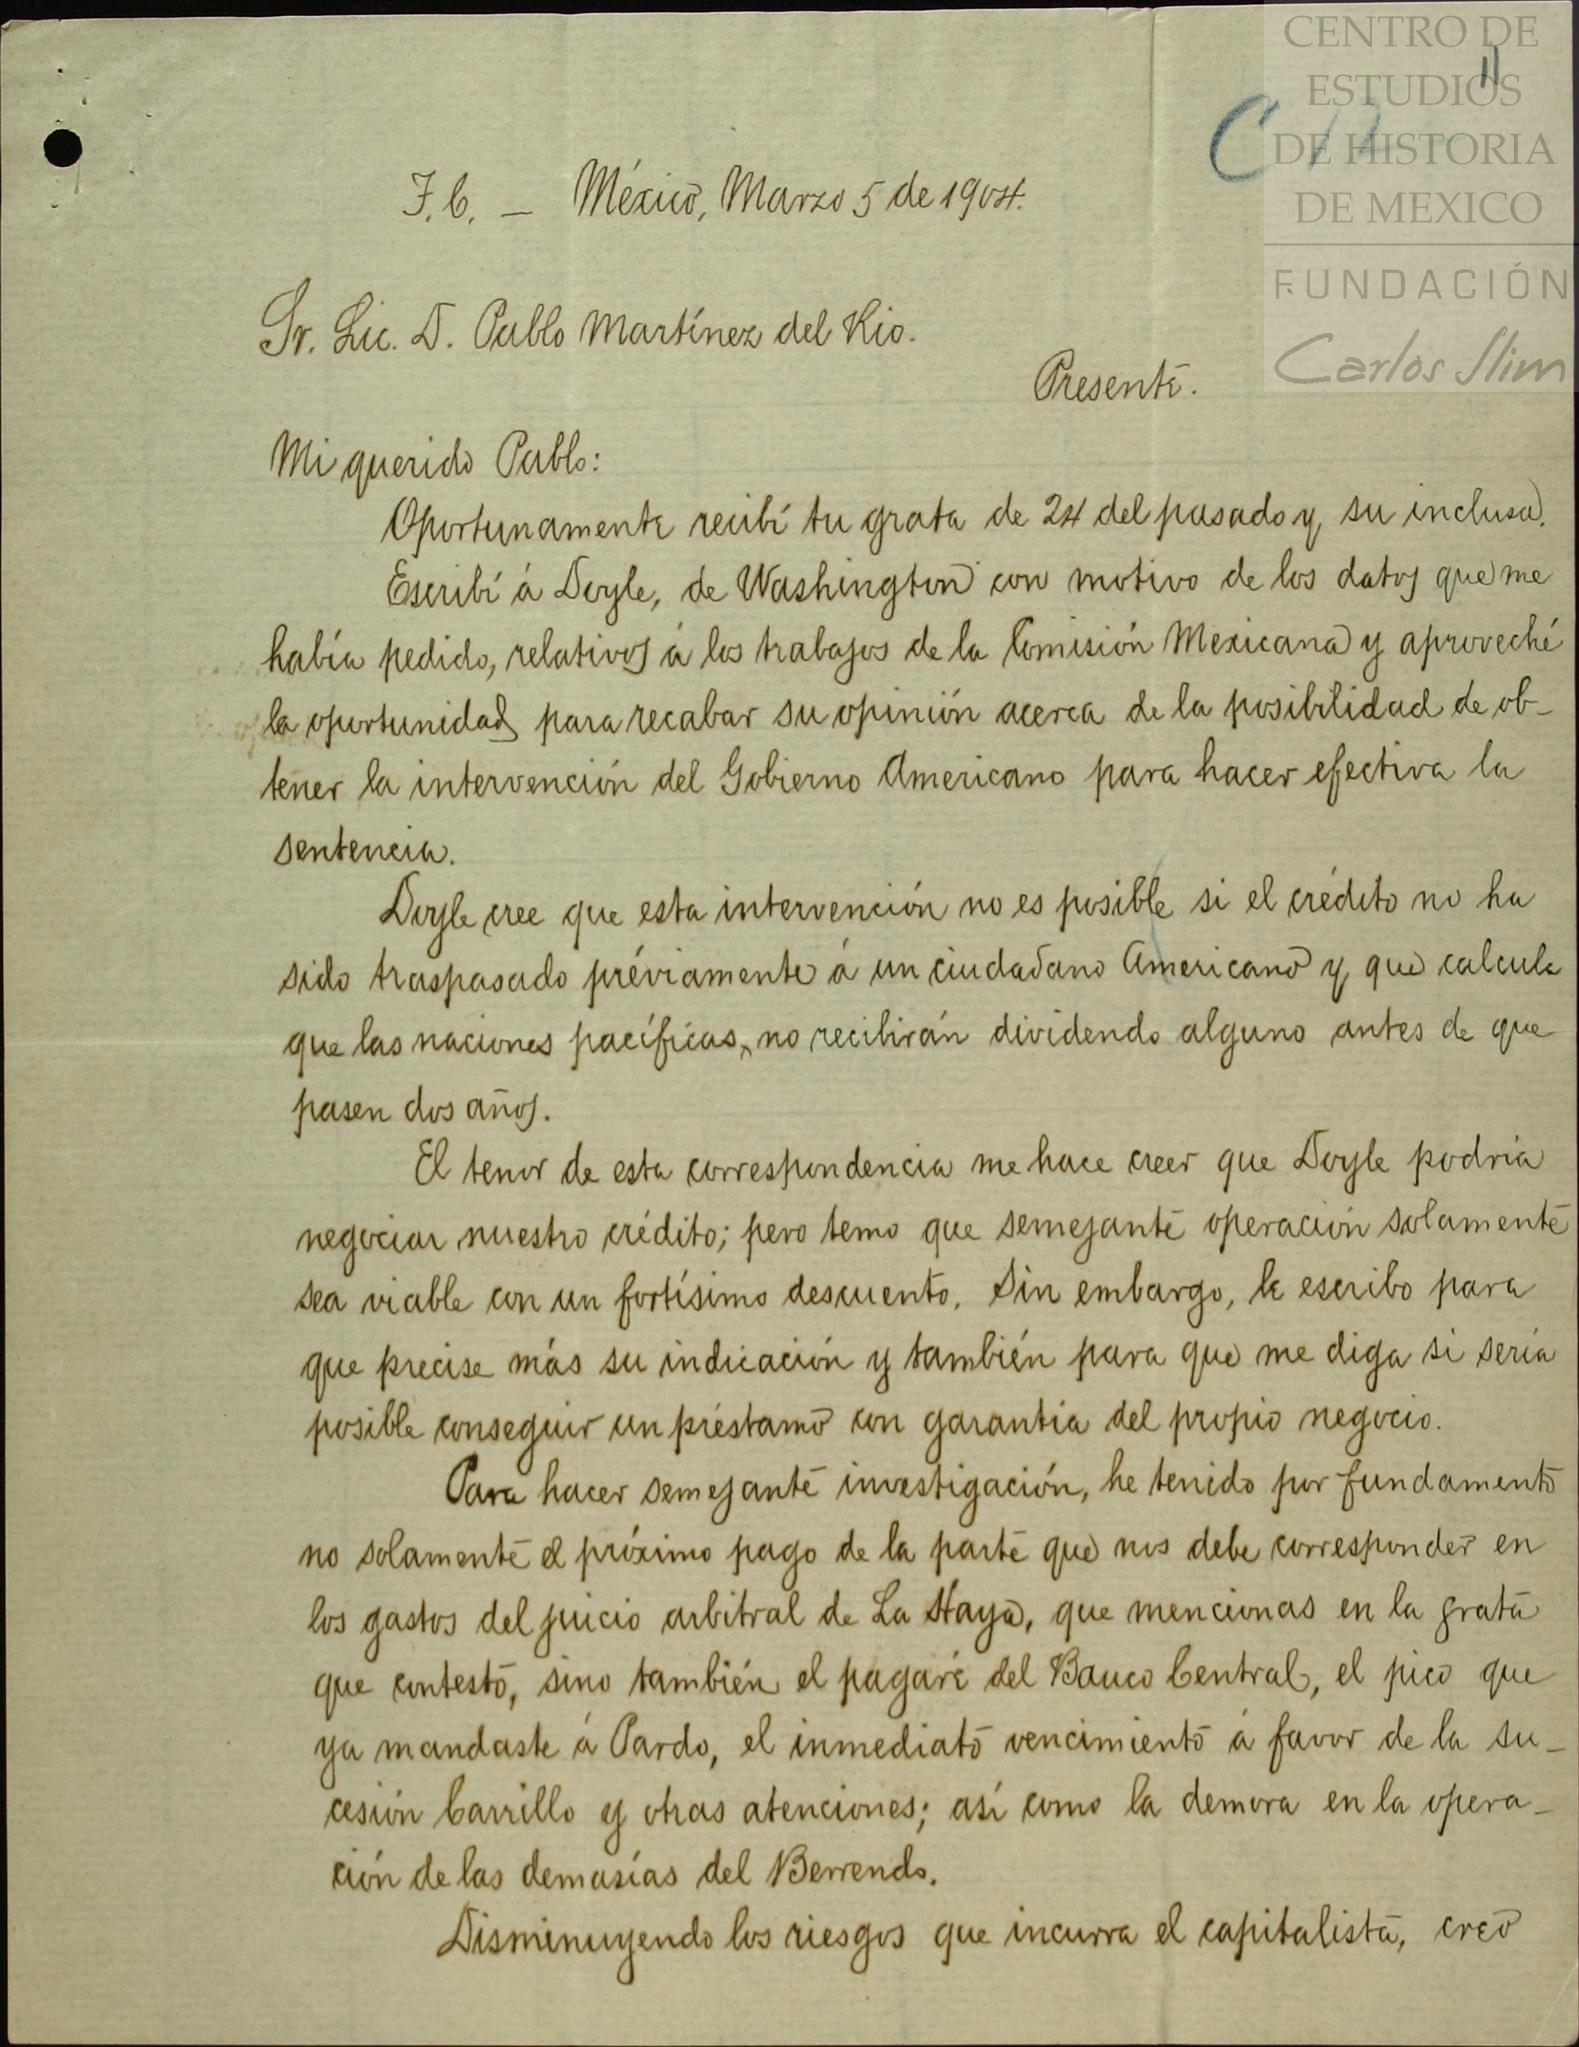 CENTRO DE
ESTUDIOS
DE HISTORIA
DE MEXICO
FUNDACIÓN
Carlos Slim
11
C
F. C. — México, Marzo 5 de 1904.
Sr. Lic. D. Pablo Martínez del Rio.
Presente.
Mi querido Pablo:
Oportunamente recibí tu grata de 24 del pasado y su inclusa.
Escribí á Doyle, de Washington con motivo de los datos que me
había pedido, relativos á los trabajos de la Comisión Mexicana y aproveché
la oportunidad para recabar su opinión acerca de la posibilidad de ob-
tener la intervención del Gobierno Americano para hacer efectiva la
sentencia.
Doyle cree que esta intervención no es posible si el crédito no ha
sido traspasado préviamente á un ciudadano Americano y que calcula
que las naciones pacíficas, no recibirán dividendo alguno antes de que
pasen dos años.
El tenor de esta correspondencia me hace creer que Doyle podría
negociar nuestro crédito; pero temo que semejante operación solamente
sea viable con un fortísimo descuento. Sin embargo, le escribo para
que precise más su indicación y también para que me diga si sería
posible conseguir un préstamo con garantía del propio negocio.
Para hacer semejante investigación, he tenido por fundamento
no solamente el próximo pago de la parte que nos debe corresponder en
los gastos del juicio arbitral de La Haya, que mencionas en la grata
que contesto, sino también el pagaré del Banco Central, el pico que
ya mandaste á Pardo, el inmediato vencimiento á favor de la su-
cesión Carrillo y otras atenciones; así como la demora en la opera-
ción de las demasías del Berrendo.
Disminuyendo los riesgos que incurra el capitalista, creo